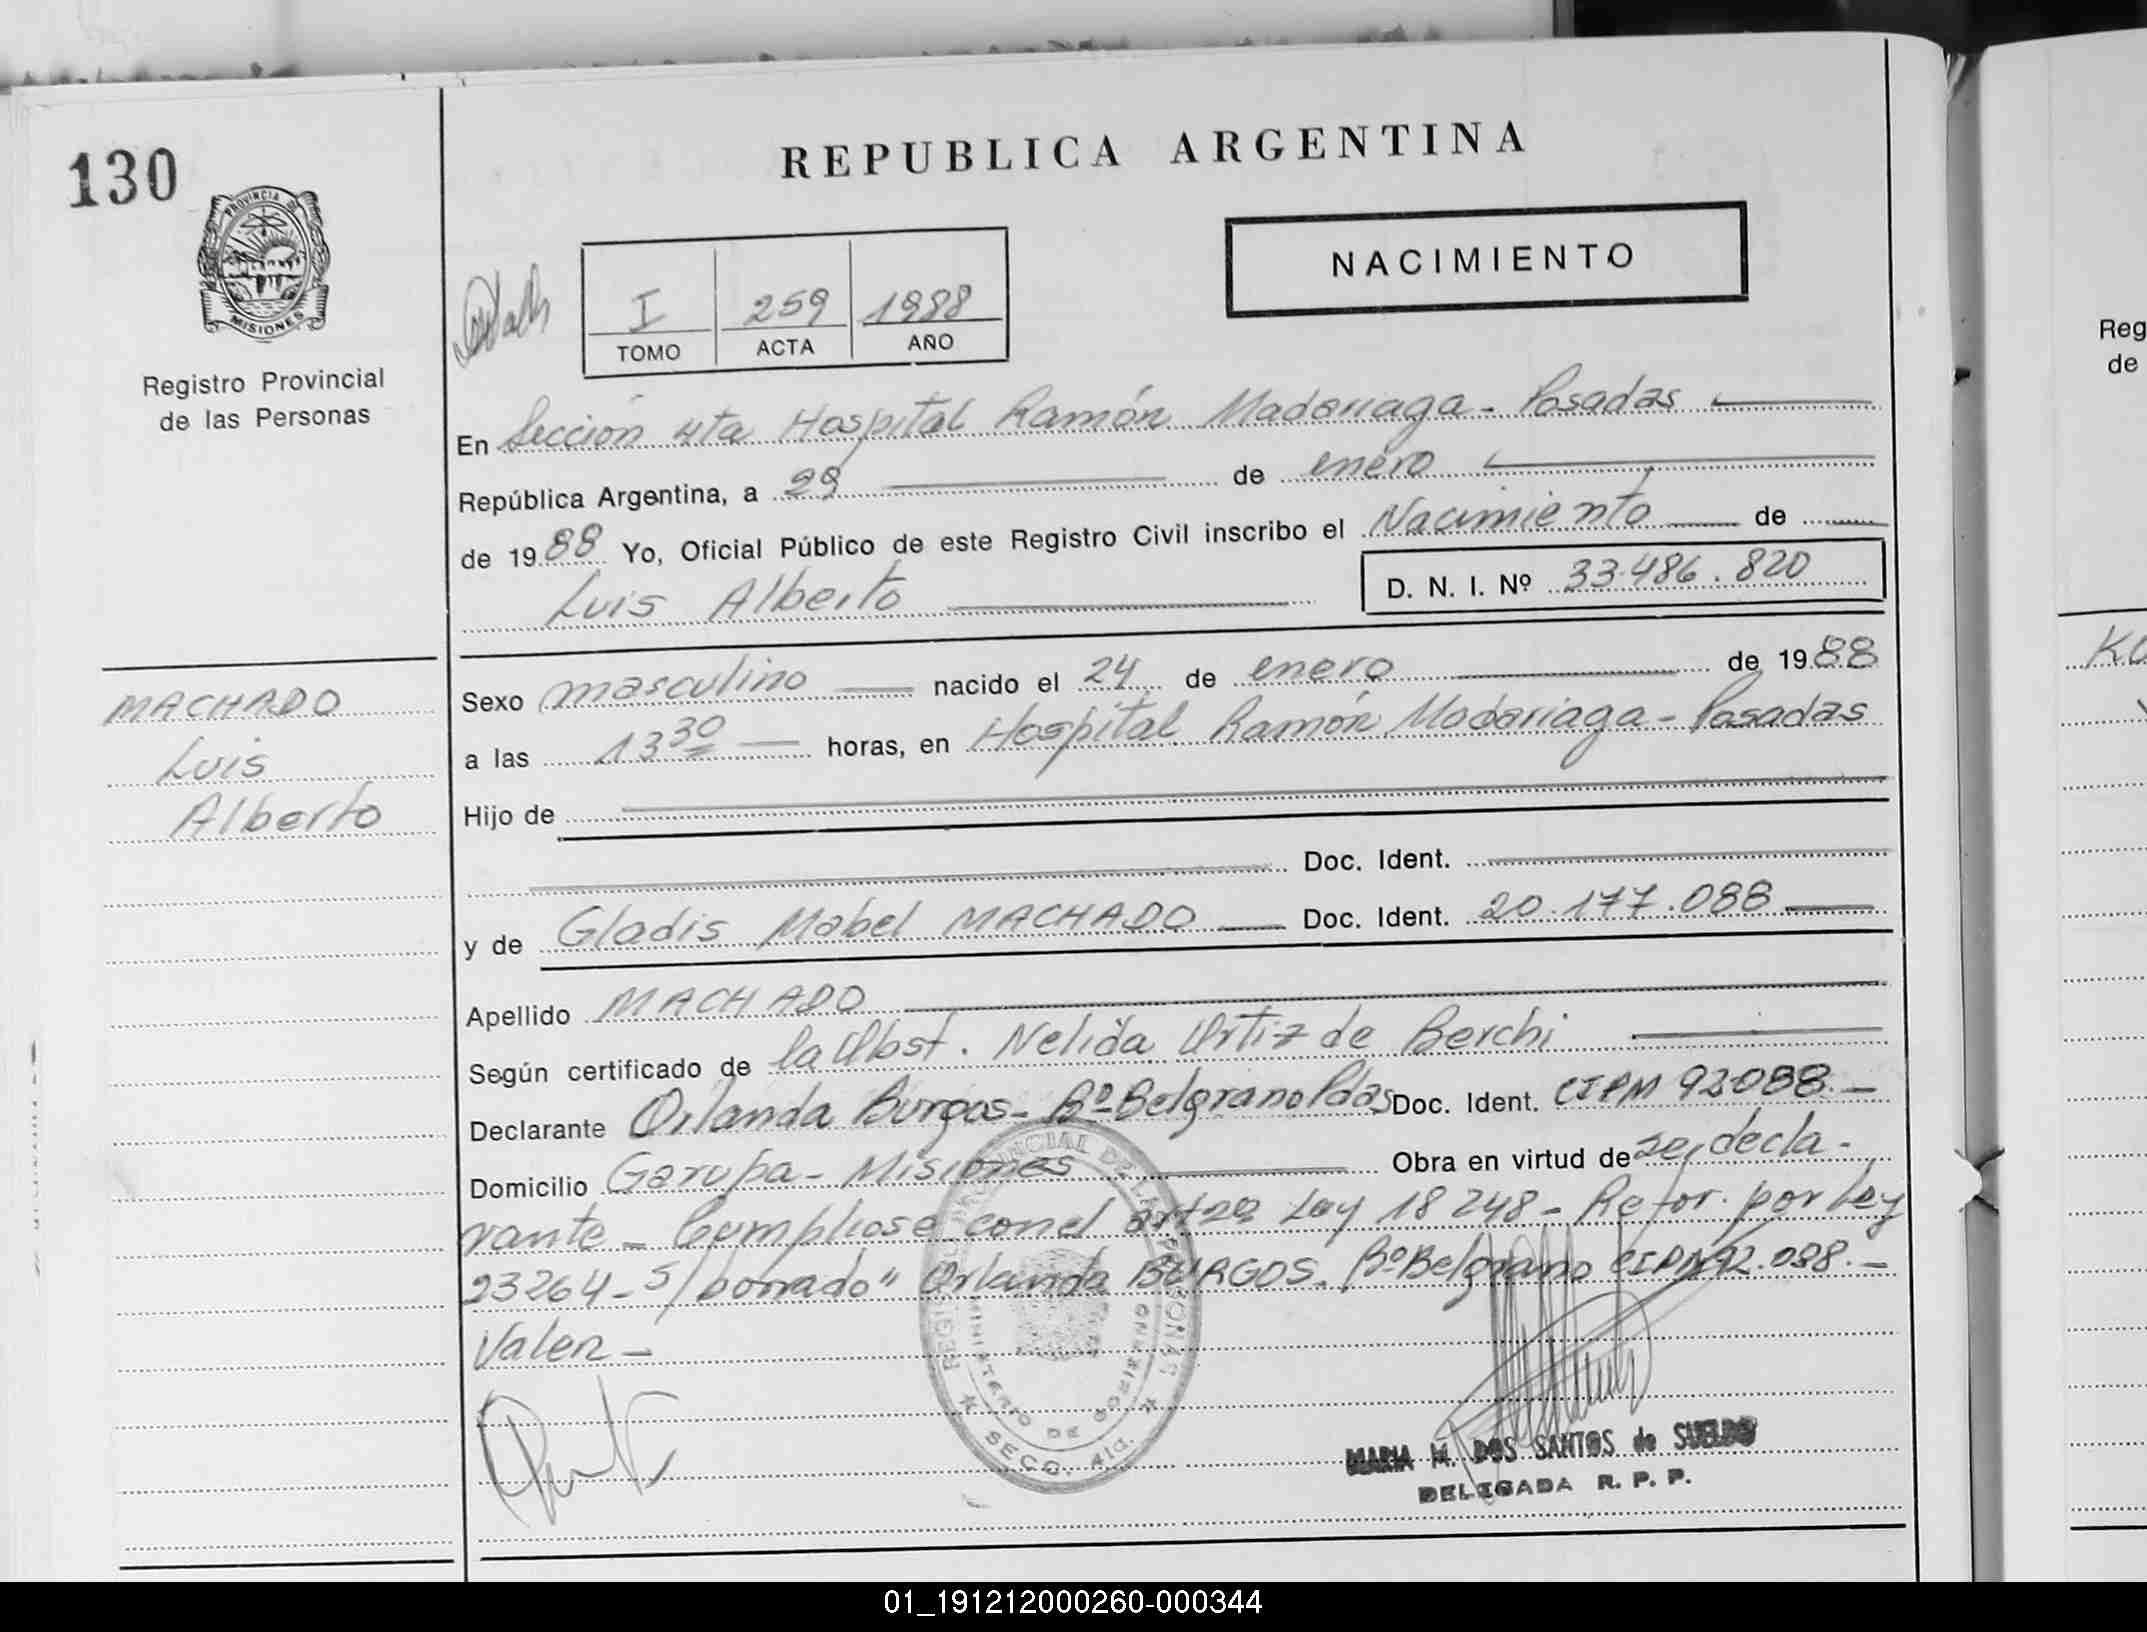 130
PROVINCIA DE
MISIONES
Registro Provincial
de las Personas
MACHADO
Luis
Alberto
REPUBLICA ARGENTINA
I 259 1988
TOMO ACTA AÑO
NACIMIENTO
En Sección 4ta Hospital Ramón Madariaga - Posadas
República Argentina, a 29 de enero
de 1988 Yo, Oficial Público de este Registro Civil inscribo el Nacimiento de
Luis Alberto D. N. I. Nº 33.486.820
Sexo masculino nacido el 24 de enero de 1988
a las 13 30 horas, en Hospital Ramón Madariaga - Posadas
Hijo de
Doc. Ident.
y de Gladis Mabel MACHADO Doc. Ident. 20.177.088
Apellido MACHADO
Según certificado de la Obst. Nelida Ortiz de Berchi
Declarante Orlanda Burgos - Bº Belgrano Pdas Doc. Ident. CIPM 92088.-
Domicilio Garupa - Misiones Obra en virtud de se, decla-
rante - Cumpliose con el art 2º Ley 18 248 - Refor. por Ley
23264 - S/borrado" Orlanda BURGOS. Bº Belgrano CIPM 92.088.-
Valen -
REGISTRO PROVINCIAL DE LAS PERSONAS
MINISTERIO DE GOBIERNO
SECC. 4ta.
MARIA M. DOS SANTOS de SUELDO
DELEGADA R. P. P.
Reg
de
01_191212000260-000344